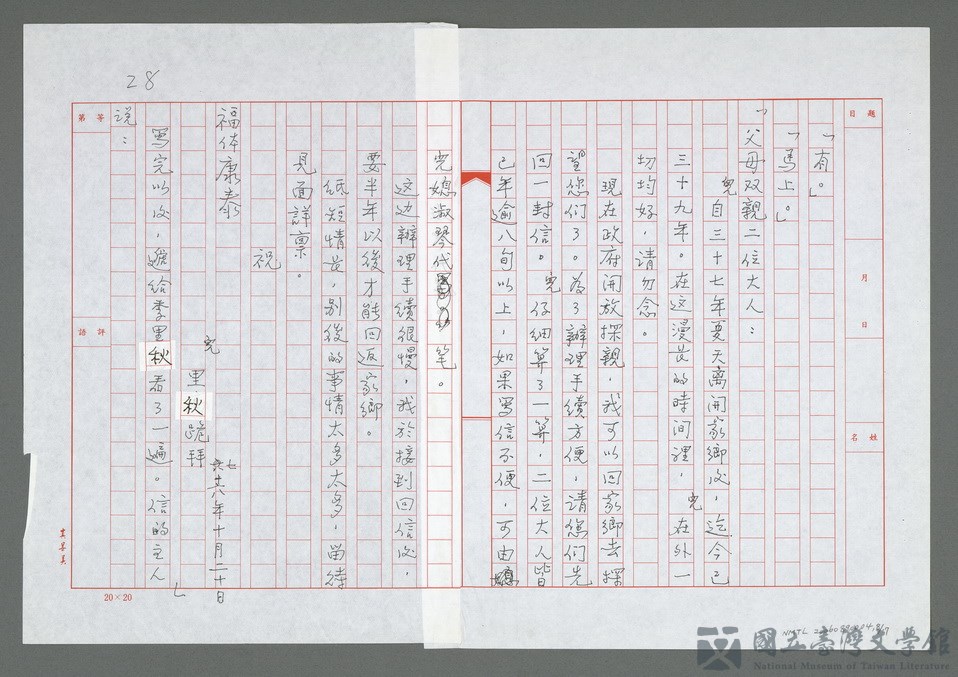 28
題目
月
日
姓名
「有。」
「馬上。」
「父母双親二位大人：
兒自三十七年夏天离開家鄉后，迄今已
三十九年。在这漫長的時间裡，兒在外一
切均好，请勿念。
現在政府開放探親，我可以回家鄉去探
望您们了。為了辦理手續方便，請您们先
回一封信。兒仔细算了一算，二位大人皆
已年逾八旬以上，如果写信不便，可由
兒媳淑琴代笔。
这边辦理手續很慢，我於接到回信后，
要半年以後才能回返家鄉。
纸短情長，别後的事情太多太多，留待
見面詳禀。
祝
福体康泰
兒
里秋跪拜
七十六年十月二十日」
写完以后，遞给季里秋看了一遍。信的主人
說：
第
等
評語
20×20
NMTL
國立臺灣文學館
National Museum of Taiwan Literature